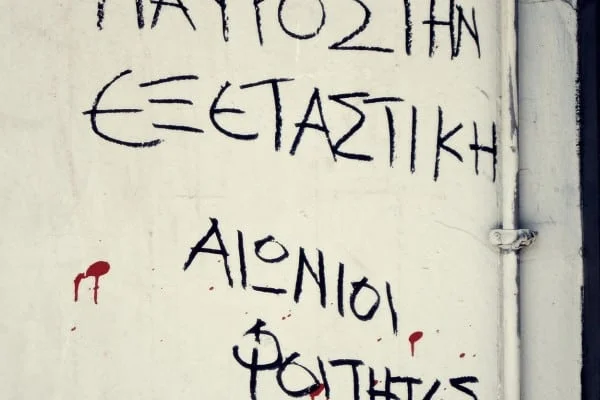 ΜΑΥΡΟ ΣΤΗΝ
ΕΞΕΤΑΣΤΙΚΗ
ΑΙΩΝΙΟΙ
ΦΟΙΤΗΤΕΣ